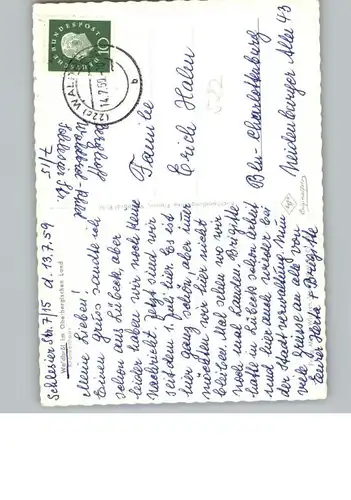 Schlesier Str. 7/15 d. 13.7.59
Waldbröl im Oberbergischen Land
Meine Lieben!
Einen Gruss sandte ich
schon aus Lübeck, aber
leider haben wir noch keine
Nachricht. Jetzt sind wir
seit dem 1. Juli hier. Es ist
hier ganz schön, aber immer
möchten wir hier nicht
bleiben. Mal sehen wo wir
noch mal landen. Brigitte
hatte in Lübeck schon Arbeit
und hier auch wieder bei
der Stadtverwaltung. Nun
viele Grüsse an alle von
Eurer Herta u. Brigitte
DEUTSCHE BUNDESPOST
10
(22c) WALDBRÖL
14.7.59
b
Schlesier Str.
7/15
582
Familie
Erich Hahn
Bln.-Charlottenburg
Heidenburger Allee 43
Agfa